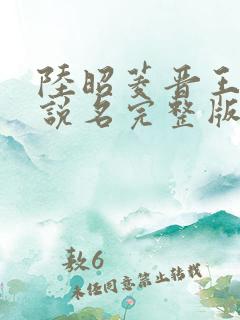 陸昭菱晋王
說名完整版
敖6
未任同意禁止转载